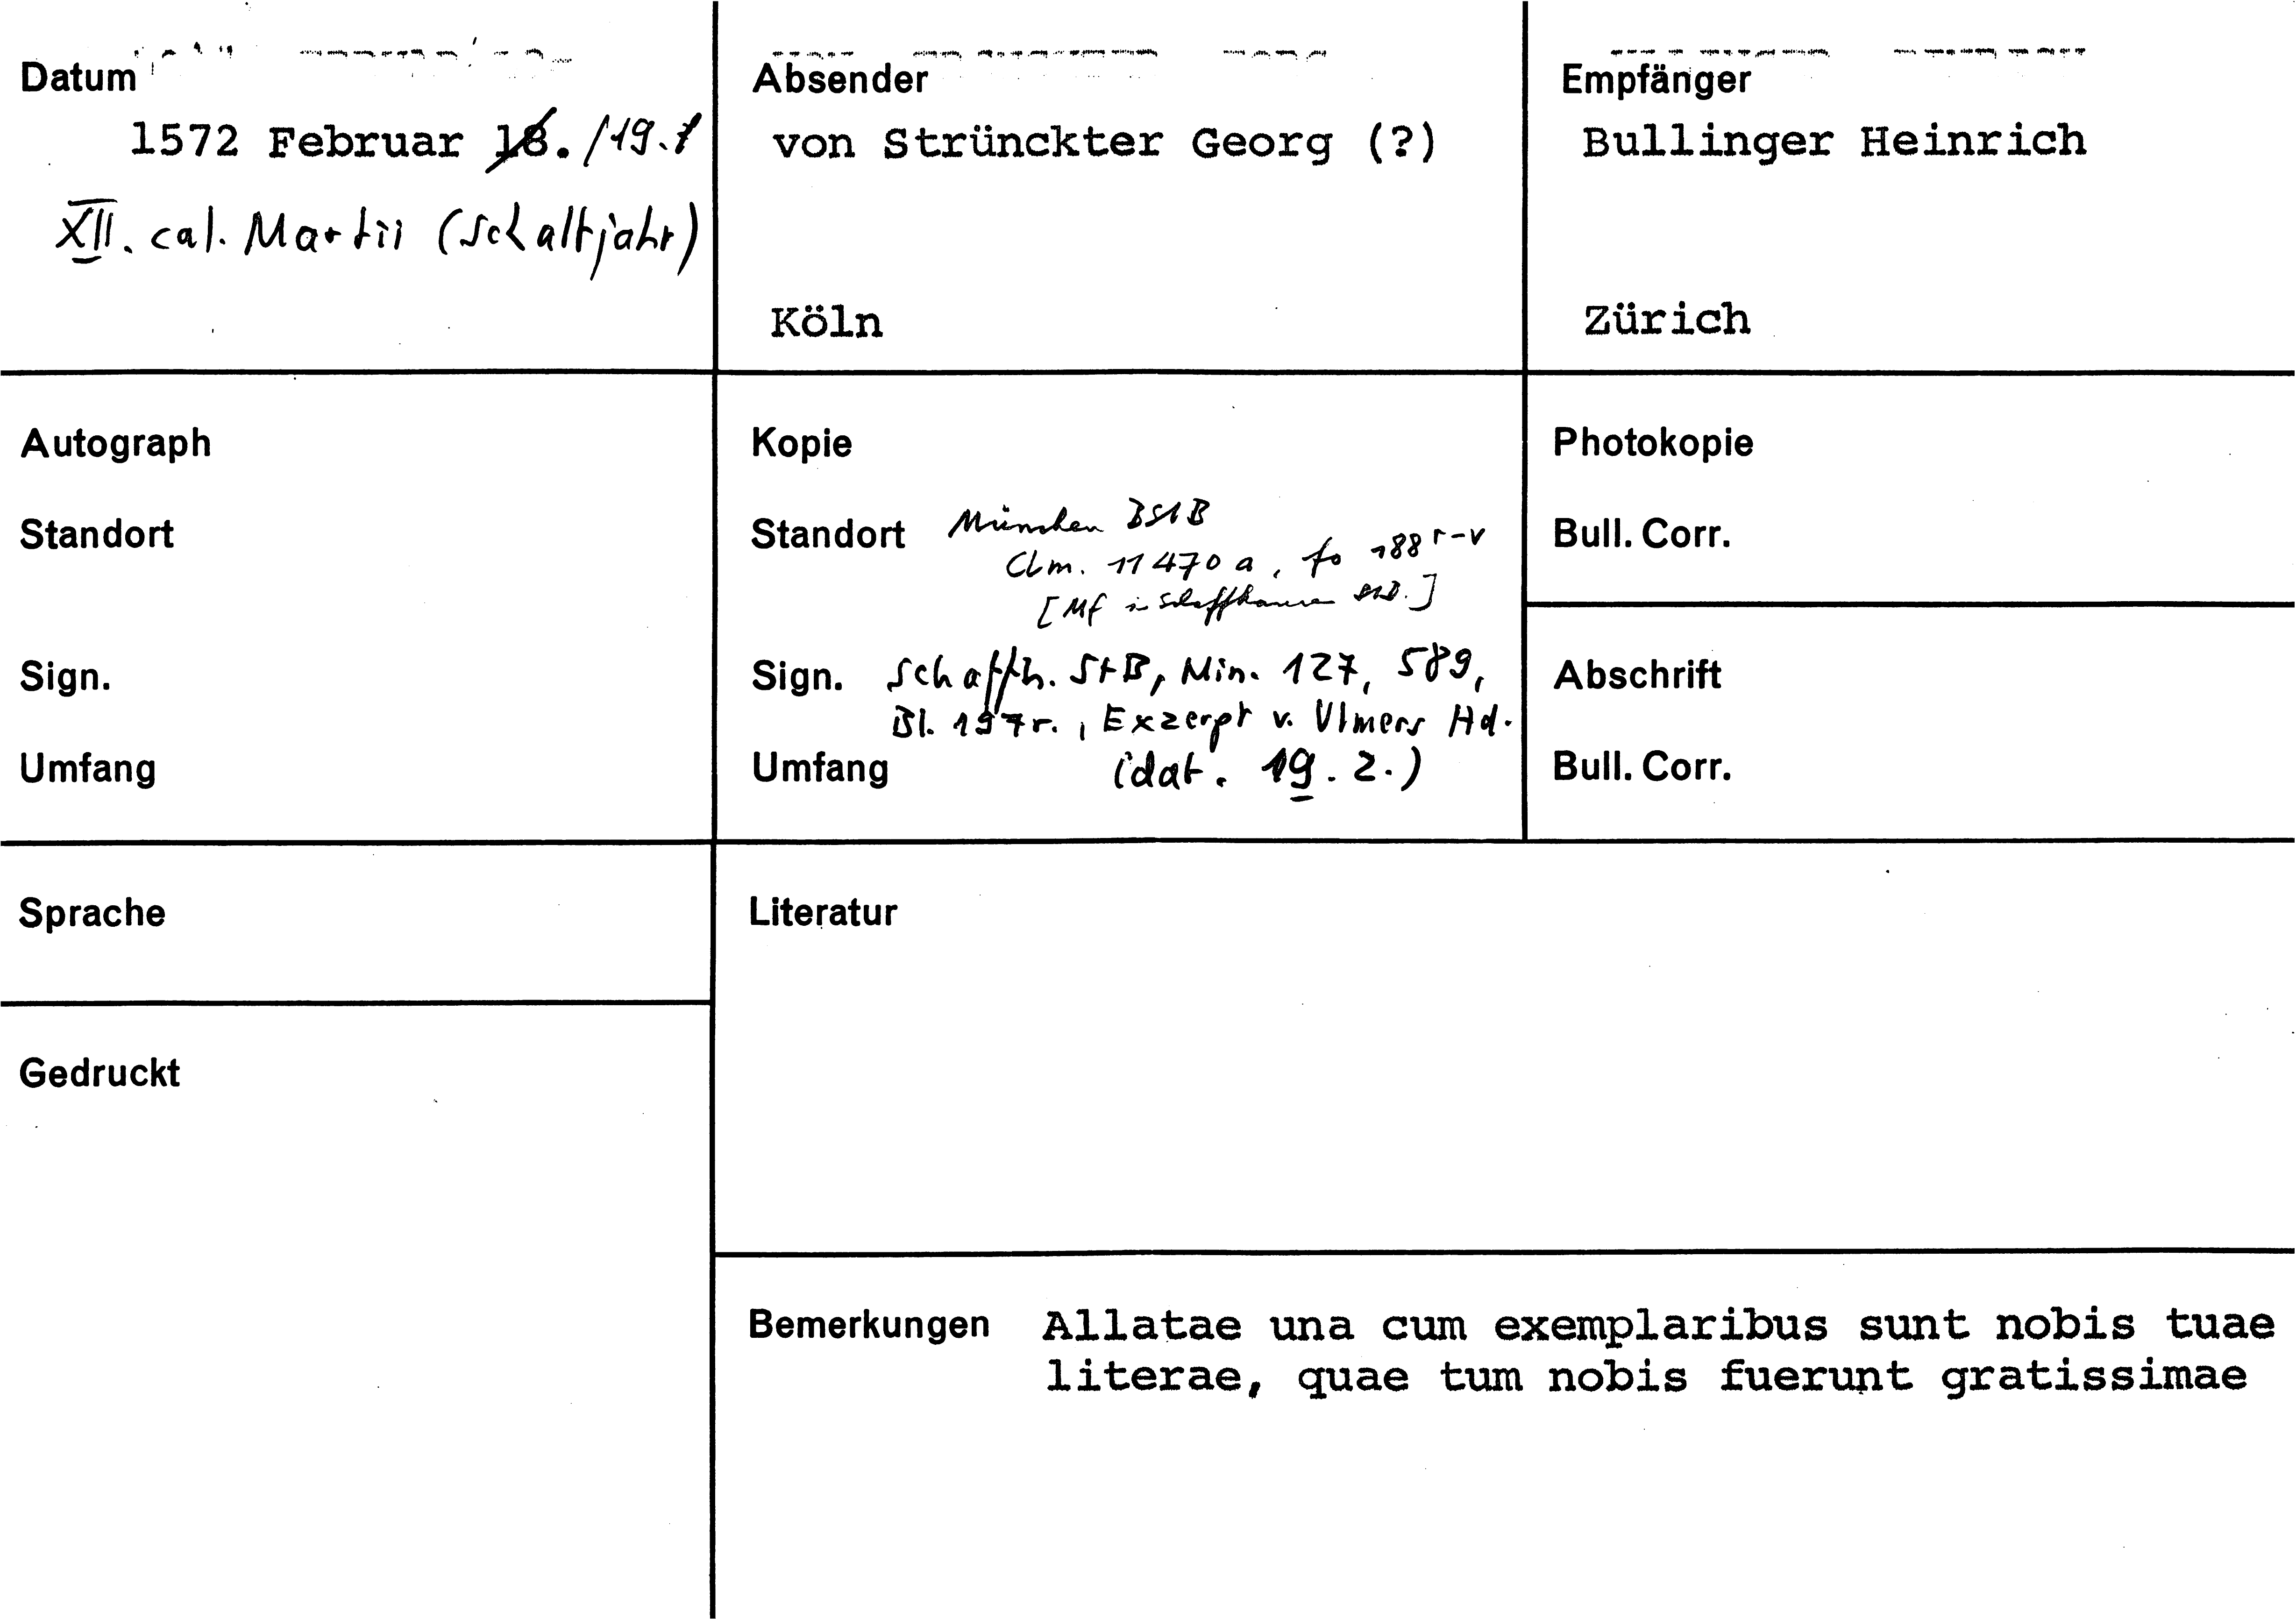 Datum
1572 Februar 18. /19.
XII. cal. Martii (Schaltjahr)
Absender
von Strünckter Georg (?)
Köln
Empfänger
Bullinger Heinrich
Zürich
Autograph
Standort
Sign.
Umfang
Kopie
Standort München BStB
Clm. 11470 a, fo 188 r-v
[Mf in Schaffhausen StB.]
Sign. Schaffh. StB, Min. 127, 589,
Bl. 197r., Exzerpt v. Ulmers Hd.
Umfang (dat. 19. 2.)
Photokopie
Bull. Corr.
Abschrift
Bull. Corr.
Sprache
Literatur
Gedruckt
Bemerkungen Allatae una cum exemplaribus sunt nobis tuae
literae, quae tum nobis fuerunt gratissimae